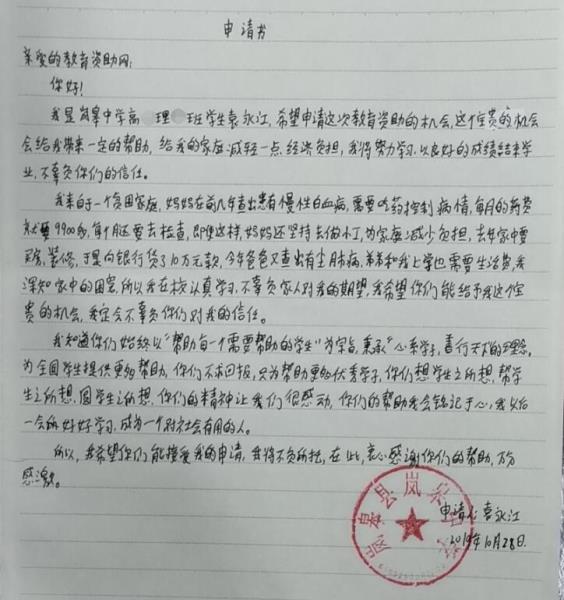 申请书
亲爱的教育资助网:
你好!
我是岚皋中学高 理 班学生袁永江,希望申请这次教育资助的机会,这个宝贵的机会
会给我带来一定的帮助,给我的家庭减轻一点经济负担,我将努力学习以良好的成绩结束学
业,不辜负你们的信任。
我来自一个贫困家庭,妈妈在前几年查出患有慢性白血病,需要吃药控制病情,每月的药费
就要9900多,每个月还要去检查,即使这样,妈妈还坚持去做小工,为家庭减少负担,去年家中要
买房,装修,于是向银行贷了10万元款,今年爸爸又查出有尘肺病,弟弟和我上学也需要生活费,我
深知家中的困窘,所以我在校认真学习,不辜负家人对我的期望,我希望你们能给予我这个宝
贵的机会,我定会不辜负你们对我的信任。
我知道你们始终以“帮助每一个需要帮助的学生”为宗旨,秉承“心系学子,善行天下的理念,
为全国学生提供更多帮助,你们不求回报,只为帮助更多优秀学子,你们想学生之所想,帮学
生之所想,圆学生之所想,你们的精神让我们很感动,你们的帮助我会铭记于心,我以后
一会所好好学习,成为一个对社会有用的人。
所以,我希望你们能接受我的申请,我将不负所托,在此,衷心感谢你们的帮助,万分
感激。
申请人:袁永江
2019年10月28日.
岚皋县岚